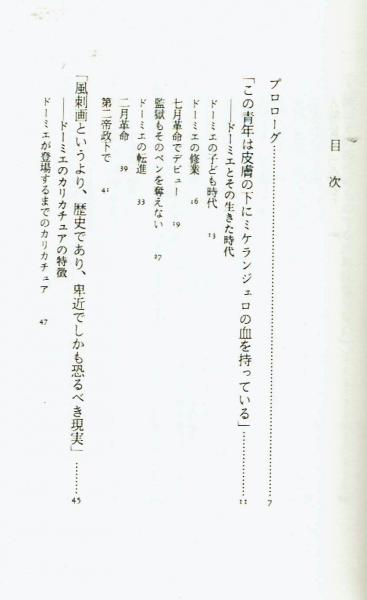 目次
プロローグ……………………………………7
「この青年は皮膚の下にミケランジェロの血を持っている」………11
──ドーミエとその生きた時代
ドーミエの子ども時代 13
ドーミエの修業 16
七月革命でデビュー 19
監獄もそのペンを奪えない 27
ドーミエの転進 33
二月革命 39
第二帝政下で 41
「風刺画というより、歴史であり、卑近でしかも恐るべき現実」………45
──ドーミエのカリカチュアの特徴
ドーミエが登場するまでのカリカチュア 47